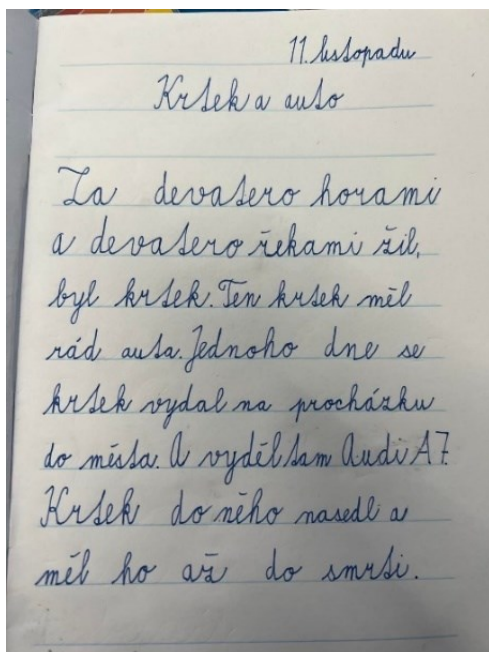 11. listopadu
Krtek a auto
Za devatero horami
a devatero řekami žil,
byl krtek. Ten krtek měl
rád auta. Jednoho dne se
krtek vydal na procházku
do města. A vyděl tam Audi A7.
Krtek do něho nasedl a
měl ho až do smrti.